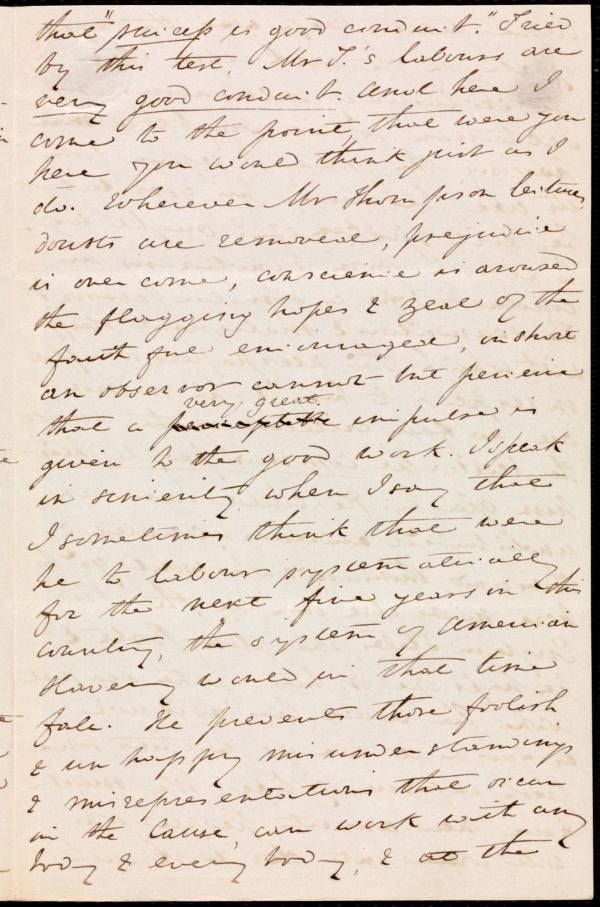 that "success is good conduct." Tried
by this test, Mr T.'s labours are
very good conduct. And here I
come to the point, that were you
here you would think just as I
do. Wherever Mr Thompson lectures,
doubts are removed, prejudice
is overcome, conscience is aroused
the flagging hopes & zeal of the
faithful encouraged, in short
an observor cannot but perceive
very great
that a perceptible impulse is
given to the good work. I speak
in sincerity when I say that
I sometimes think that were
he to labour systematically
for the next five years in this
country, the system of American
Slavery would in that time
fall. He prevents those foolish
& unhappy misunderstandings
& misrepresentations that occur
in the Cause, can work with any
body & every body, & at the